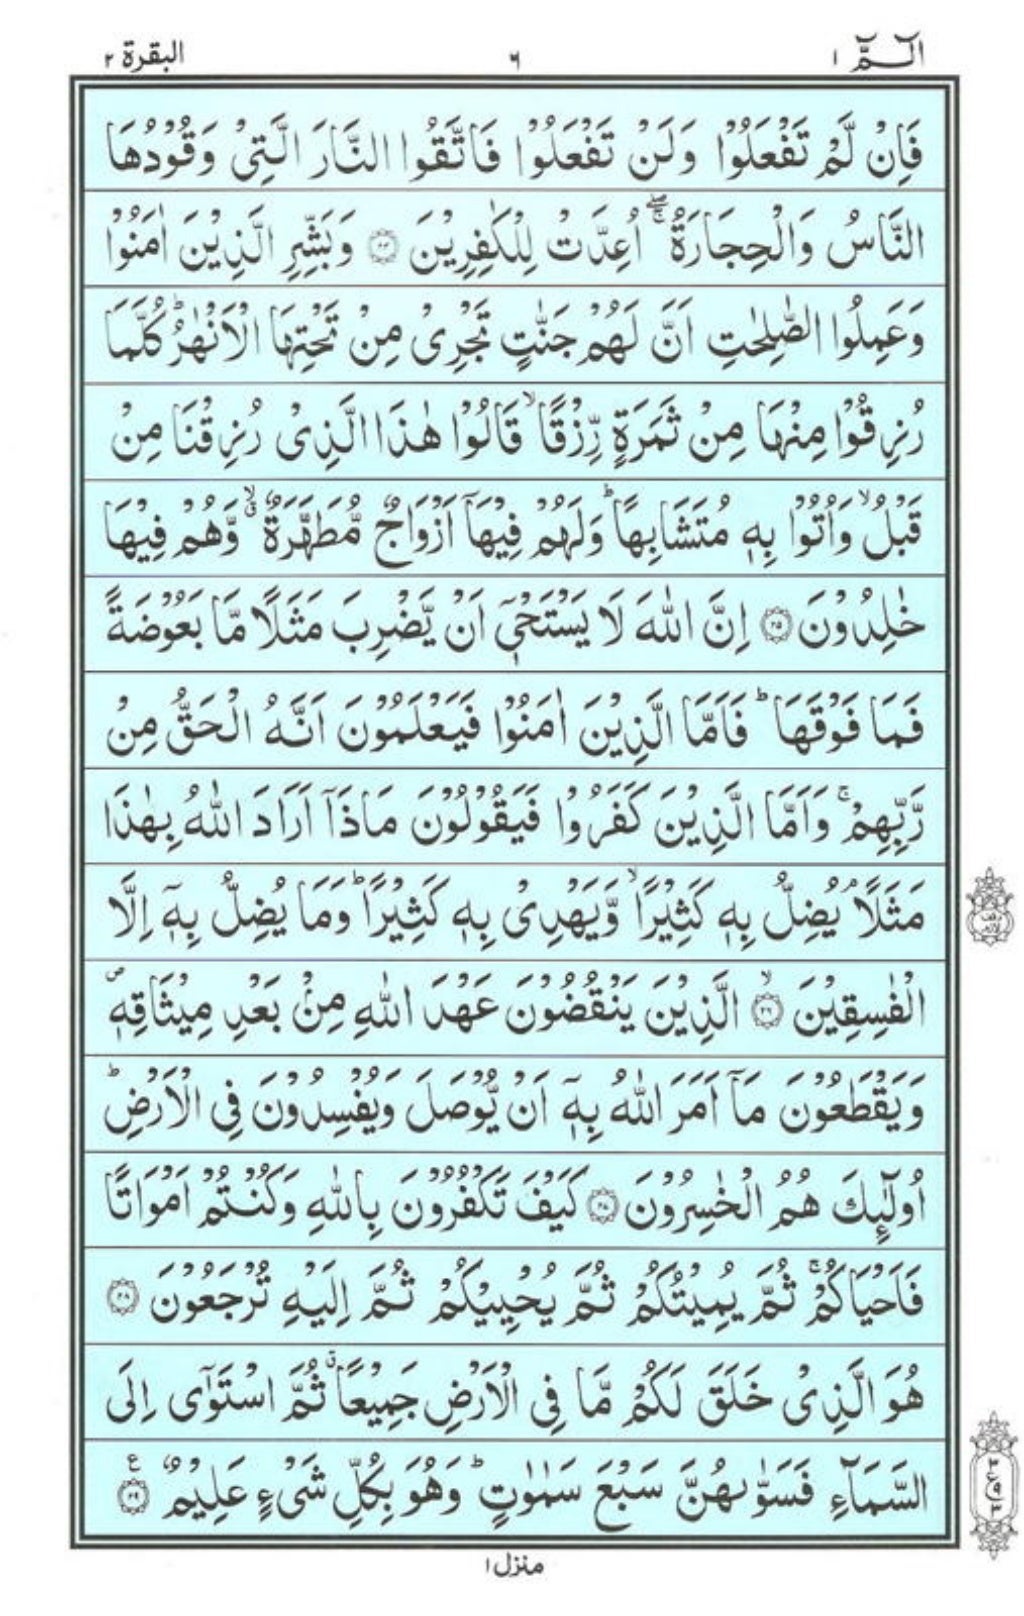 الٓمّٓ ١ ٦ البقرة ٢
فَاِنْ لَّمْ تَفْعَلُوْا وَلَنْ تَفْعَلُوْا فَاتَّقُوا النَّارَ الَّتِیْ وَقُوْدُهَا
النَّاسُ وَالْحِجَارَةُ ۖۚ اُعِدَّتْ لِلْكٰفِرِیْنَ ۝۲۴ وَبَشِّرِ الَّذِیْنَ اٰمَنُوْا
وَعَمِلُوا الصّٰلِحٰتِ اَنَّ لَهُمْ جَنّٰتٍ تَجْرِیْ مِنْ تَحْتِهَا الْاَنْهٰرُ ؕ كُلَّمَا
رُزِقُوْا مِنْهَا مِنْ ثَمَرَةٍ رِّزْقًا ۙ قَالُوْا هٰذَا الَّذِیْ رُزِقْنَا مِنْ
قَبْلُ ۙ وَاُتُوْا بِهٖ مُتَشَابِهًا ؕ وَلَهُمْ فِیْهَاۤ اَزْوَاجٌ مُّطَهَّرَةٌ ۙۗ وَّهُمْ فِیْهَا
خٰلِدُوْنَ ۝۲۵ اِنَّ اللّٰهَ لَا یَسْتَحْیٖۤ اَنْ یَّضْرِبَ مَثَلًا مَّا بَعُوْضَةً
فَمَا فَوْقَهَا ؕ فَاَمَّا الَّذِیْنَ اٰمَنُوْا فَیَعْلَمُوْنَ اَنَّهُ الْحَقُّ مِنْ
رَّبِّهِمْ ۚ وَاَمَّا الَّذِیْنَ كَفَرُوْا فَیَقُوْلُوْنَ مَاذَاۤ اَرَادَ اللّٰهُ بِهٰذَا
مَثَلًا ۘ یُضِلُّ بِهٖ كَثِیْرًا ۙ وَّیَهْدِیْ بِهٖ كَثِیْرًا ؕ وَمَا یُضِلُّ بِهٖۤ اِلَّا
وقف لازم
الْفٰسِقِیْنَ ۝۲۶ ۙ الَّذِیْنَ یَنْقُضُوْنَ عَهْدَ اللّٰهِ مِنْۢ بَعْدِ مِیْثَاقِهٖ ۪
وَیَقْطَعُوْنَ مَاۤ اَمَرَ اللّٰهُ بِهٖۤ اَنْ یُّوْصَلَ وَیُفْسِدُوْنَ فِی الْاَرْضِ ؕ
اُولٰٓئِكَ هُمُ الْخٰسِرُوْنَ ۝۲۷ كَیْفَ تَكْفُرُوْنَ بِاللّٰهِ وَكُنْتُمْ اَمْوَاتًا
فَاَحْیَاكُمْ ۚ ثُمَّ یُمِیْتُكُمْ ثُمَّ یُحْیِیْكُمْ ثُمَّ اِلَیْهِ تُرْجَعُوْنَ ۝۲۸
هُوَ الَّذِیْ خَلَقَ لَكُمْ مَّا فِی الْاَرْضِ جَمِیْعًا ۗ ثُمَّ اسْتَوٰۤی اِلَی
السَّمَآءِ فَسَوّٰىهُنَّ سَبْعَ سَمٰوٰتٍ ؕ وَهُوَ بِكُلِّ شَیْءٍ عَلِیْمٌ ۝۲۹ ع
٣ ع ٩ ٣
منزل ١